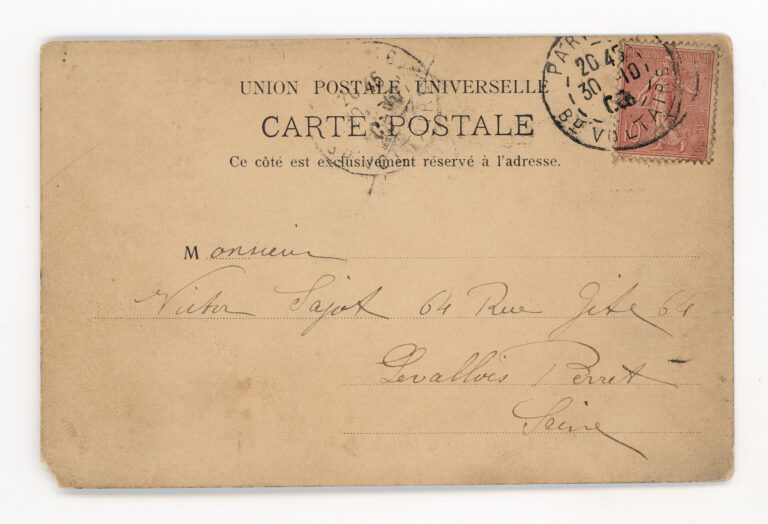 UNION POSTALE UNIVERSELLE
CARTE POSTALE
Ce côté est exclusivement réservé à l'adresse.
PARI
20 45
30 -10
Bd VOLTAIRE
Monsieur
Victor Sajot 64 Rue Gide 64
Levallois Perret
Seine